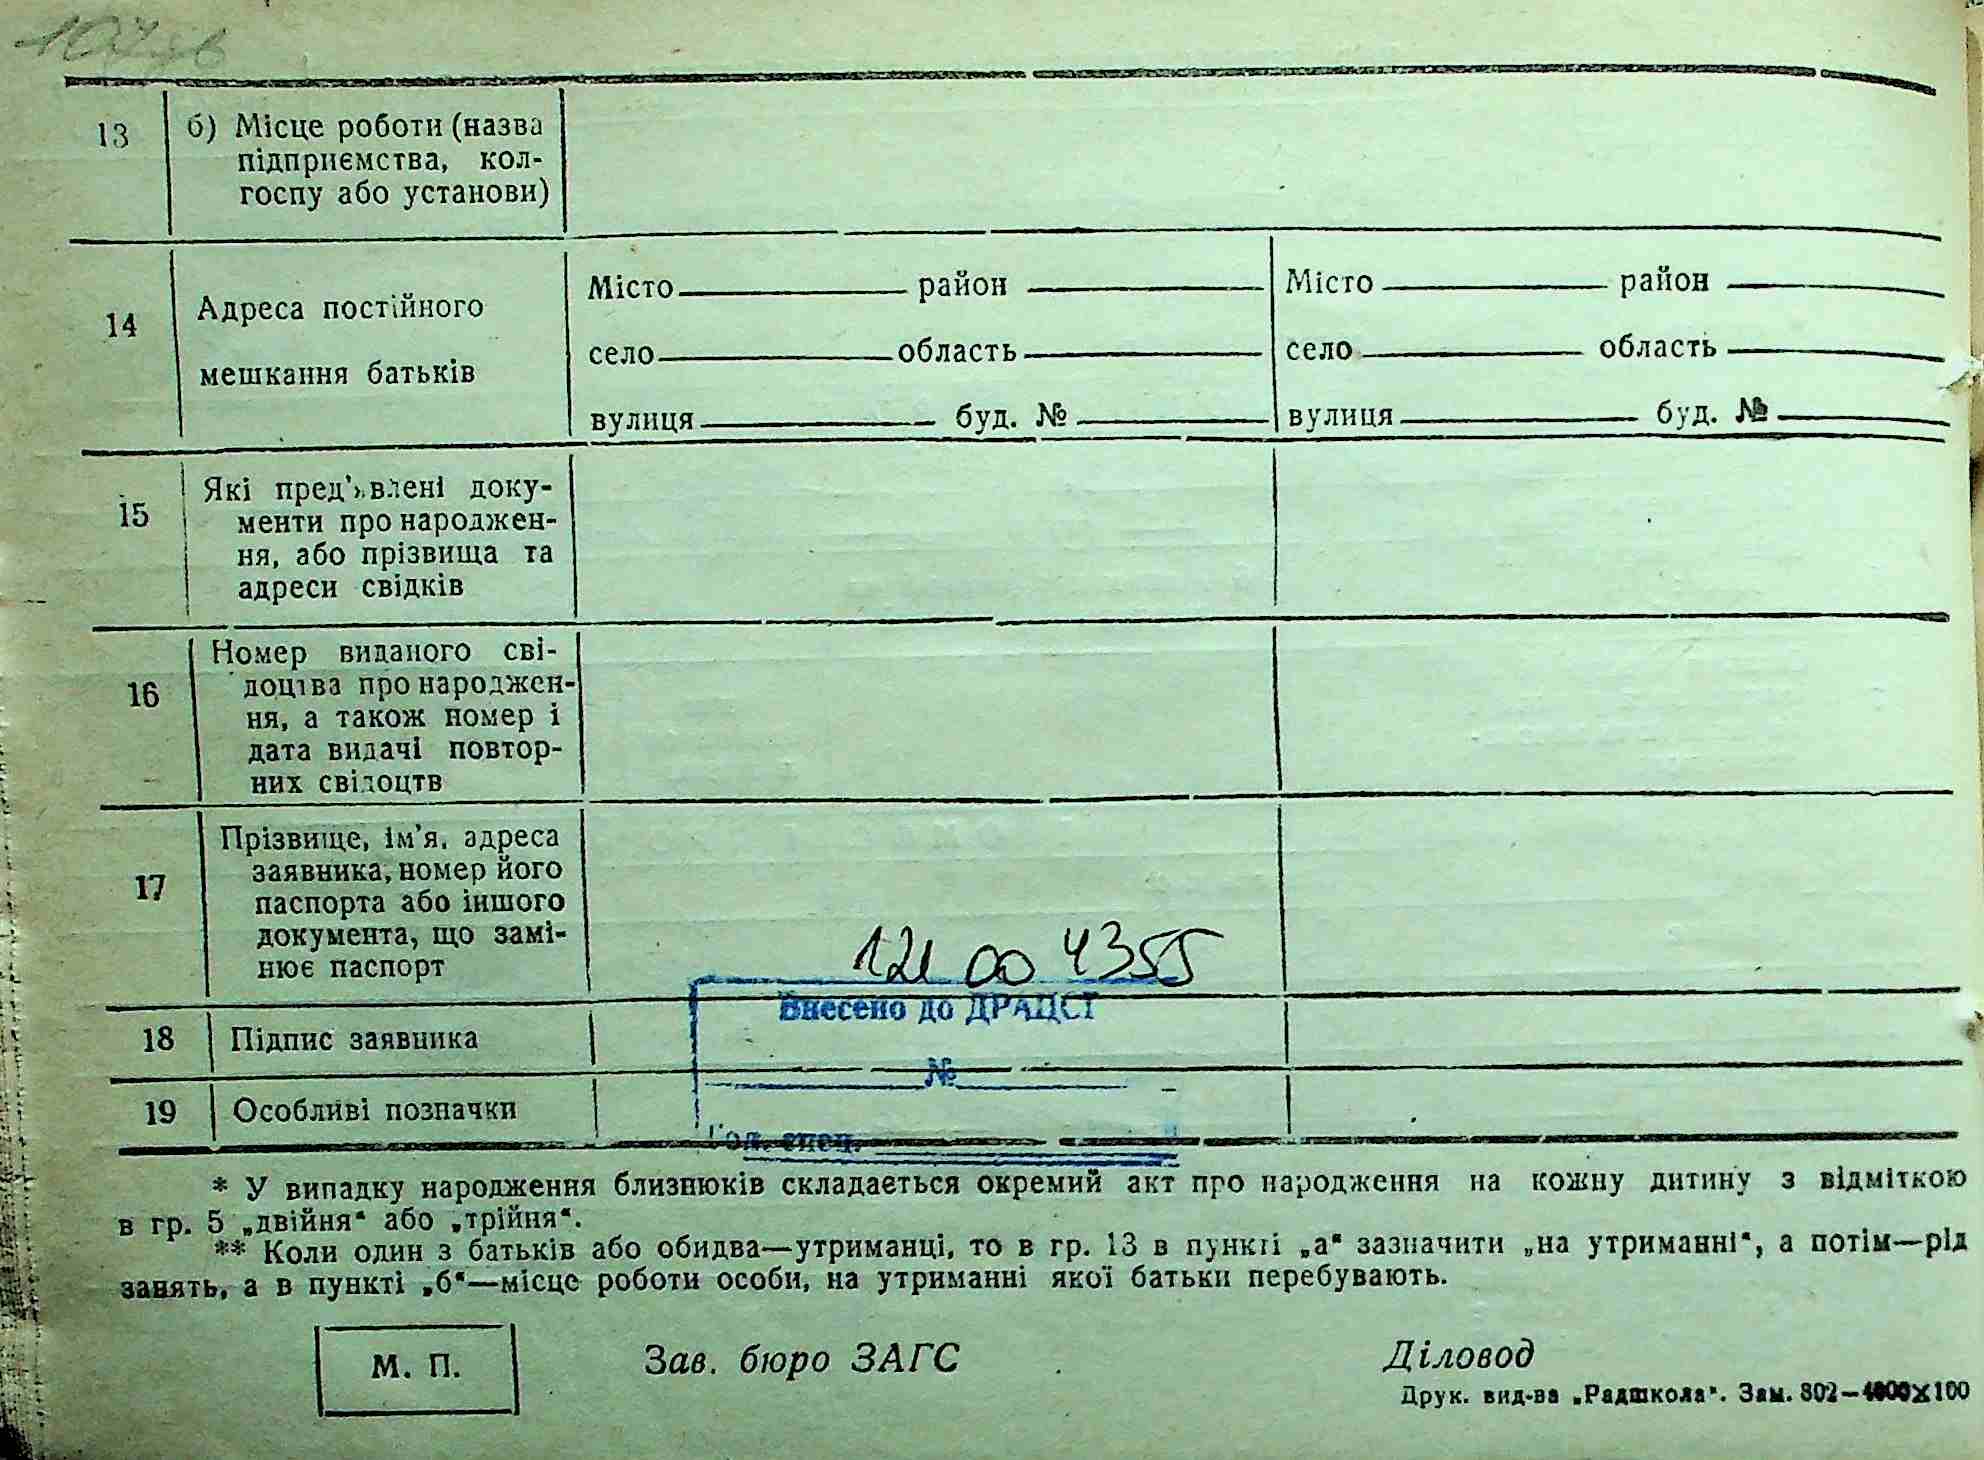 13
б) Місце роботи (назва
підприємства, кол-
госпу або установи)
14
Адреса постійного
мешкання батьків
Місто район
село область
вулиця буд. №
Місто район
село область
вулиця буд. №
15
Які пред'явлені доку-
менти про народжен-
ня, або прізвища та
адреси свідків
16
Номер виданого сві-
доцтва про народжен-
ня, а також номер і
дата видачі повтор-
них свідоцтв
17
Прізвище, ім'я, адреса
заявника, номер його
паспорта або іншого
документа, що замі-
нює паспорт
121 00 4355
Внесено до ДРАЦСГ
№
Гол. спец.
18
Підпис заявника
19
Особливі позначки
* У випадку народження близнюків складається окремий акт про народження на кожну дитину з відміткою
в гр. 5 „двійня“ або „трійня“.
** Коли один з батьків або обидва—утриманці, то в гр. 13 в пункті „а“ зазначити „на утриманні“, а потім—рід
занять, а в пункті „б“—місце роботи особи, на утриманні якої батьки перебувають.
М. П.
Зав. бюро ЗАГС
Діловод
Друк. вид-ва „Радшкола“. Зам. 802—4000×100